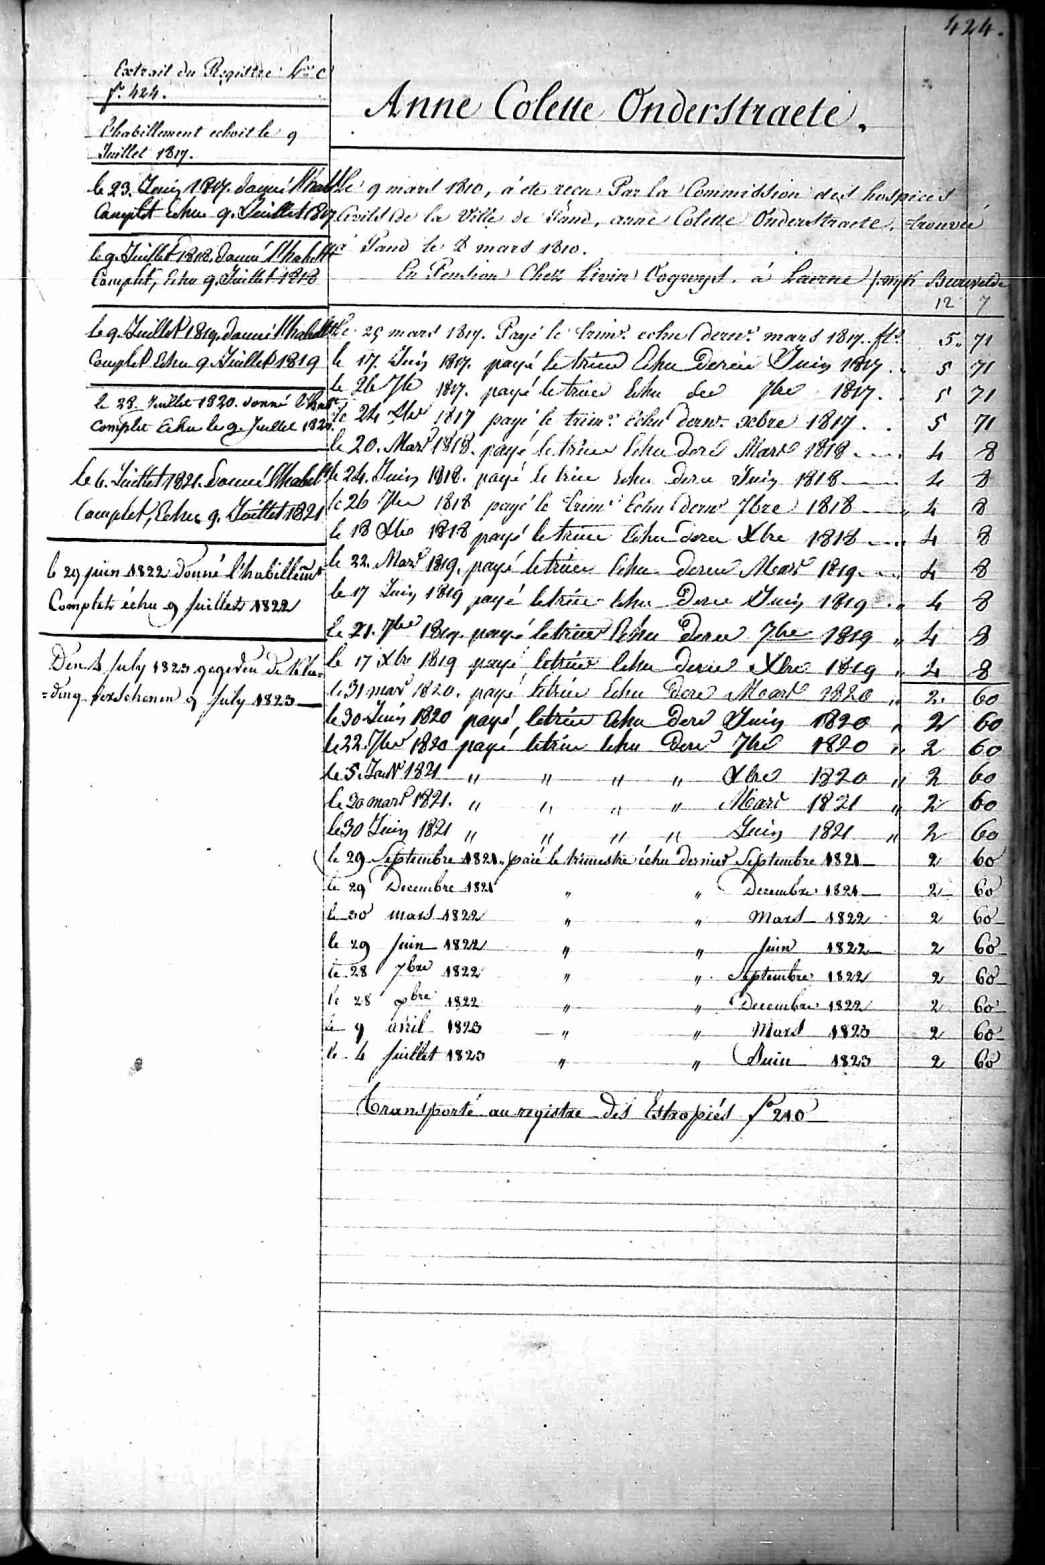 424.
Extrait du Registre Lra C
fo. 424.
L'habillement echoit le 9
Juillet 1817.
le 23. Juin 1817. donné l'habt
Complet Echu 9. Juillet 1817
le 9. Juillet 1818. donné l'habillt
Complet, Echu 9. Juillet 1818
le 9. Juillet 1819. donné l'habillt
Complet Echu 9. Juillet 1819
le 28. Juillet 1820. donné l'habt
Complet Echu le 9. Juillet 1820.
le 6. Juillet 1821. Donné l'habillt
Complet, Echu 9. Juillet 1821
le 29 juin 1822 donné l'habillemt
Complet échu 9 juillet 1822
Den 4 July 1823 gegeven de Klee-
=ding verschenen 9 July 1823
Anne Colette Onderstraete.
Le 9 mars 1810, a été recu Par la Commission des hospices
Civils de la Ville de Gand, anne Colette Onderstraete, trouvée
à Gand le 8 mars 1810.
En Pension Chez Livin à Laerne
12 7
Le 25 mars 1817. Payé le trimr. echu dernr. mars 1817. fls. 5 " 71
le 17. Juin 1817. payé le trim Echu Dernier Juin 1817. " 5 71
le 26 7bre 1817. payé le trim Echu der 7bre 1817. . 5 71
le 24 Xbre 1817 payé le trimr. échu dernr. xbre 1817 . . 5 71
le 20. Mars 1818. payé le trim Echu dere Mars 1818 . . . . 4 8
le 24. Juin 1818. payé le trim echu dere Juin 1818 4 8
le 26 7bre 1818 payé le trimr Echu dernr 7bre 1818 " 4 8
le 18 Xbre 1818 payé le trim Echu dere Xbre 1818 . . " 4 8
le 22. Mars 1819. payé le trim Echu dere Mars 1819 . . " 4 8
le 17 Juin 1819 payé le trim echu Dere Juin 1819 . " 4 8
le 21. 7bre 1819. payé le trim Echu dere 7bre 1819 " 4 8
le 17 Xbre 1819 payé le trim Echu dere Xbre 1819 " 4 8
le 31 mars 1820. payé le trim Echu Dere Mars 1820 " 2. 60
le 30 Juin 1820 payé le trim Echu Dere Juin 1820 " 2 60
le 22. 7bre 1820 payé le trim echu Dere 7bre 1820 " 2 60
le 5. Janr 1821 " " " " Xbre 1820 " 2 60
le 20 mars 1821. " " " " Mars 1821 " 2 60
le 30 Juin 1821 " " " " Juin 1821 " 2 60
le 29 Septembre 1821. paié le trimestre échu dernier Septembre 1821 2 60
le 29 Decembre 1821 " " Decembre 1821 2 60
le 30 mars 1822 " " Mars 1822 2 60
le 29 juin 1822 " " Juin 1822 2 60
le 28 7bre 1822 " " Septembre 1822 2 60
le 28 xbre 1822 " " Decembre 1822 2 60
le 9 avril 1823 " " Mars 1823 2 60
le 4 juillet 1823 " " Juin 1823 2 60
Transporté au registre des Estropiés fo 210